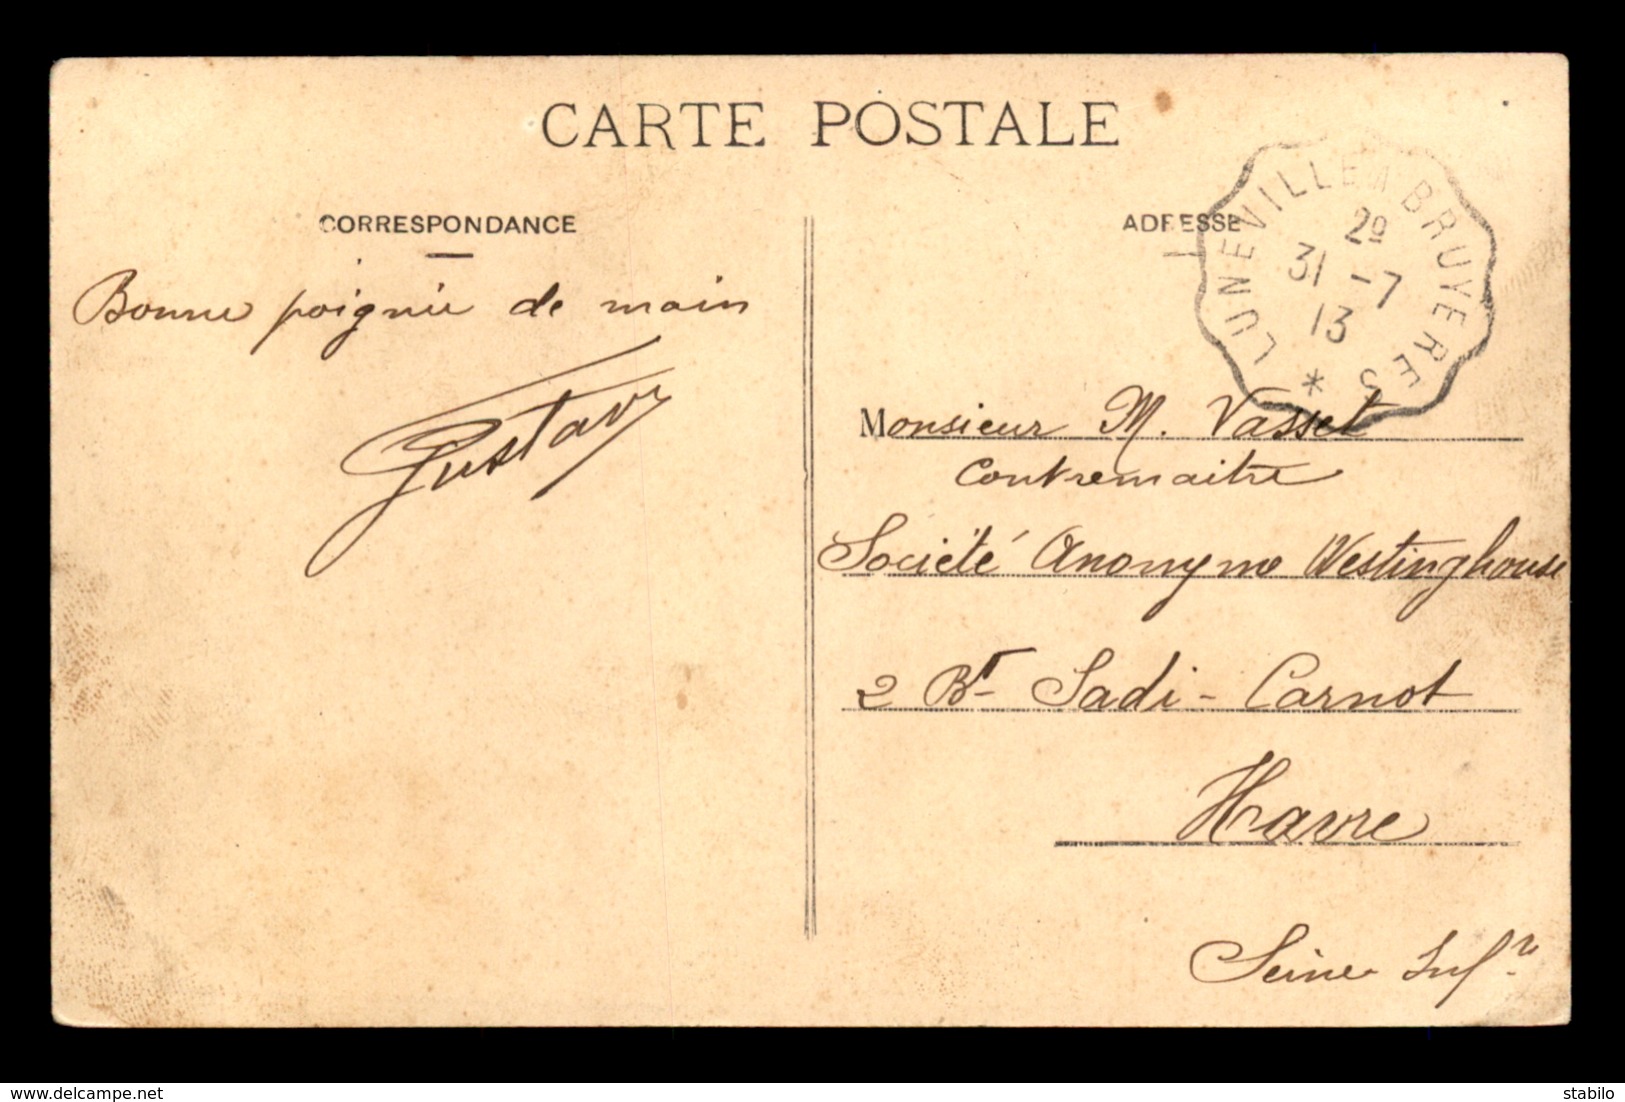 CARTE POSTALE
CORRESPONDANCE
ADRESSE
LUNEVILLE A BRUYERES *
2º
31 -7
13
Bonne poignée de main
Gustave
Monsieur M. Vasset
Contremaitre
Société Anonyme Westinghouse
2 Bd Sadi-Carnot
Havre
Seine Infre
delcampe.net
stabilo